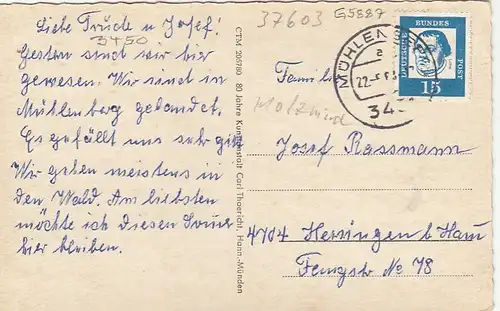 Liebe Trude u Josef!
3450
Gestern sind wir hier
gewesen. Wir sind in
Mühlenberg gelandet.
Es gefällt uns sehr gut
Wir gehen meistens in
den Wald. Am liebsten
möchte ich diesen
hier bleiben.
CTM 205780 80 Jahre Kunstanstalt Carl Thoericht, Hann.-Münden
37603
G5887
DEUTSCHE
BUNDES
POST
15
MÜHLEN
a
22.
34
Familie
Holzmind
Josef Rassmann
4704 Herringen b Ham
No 78